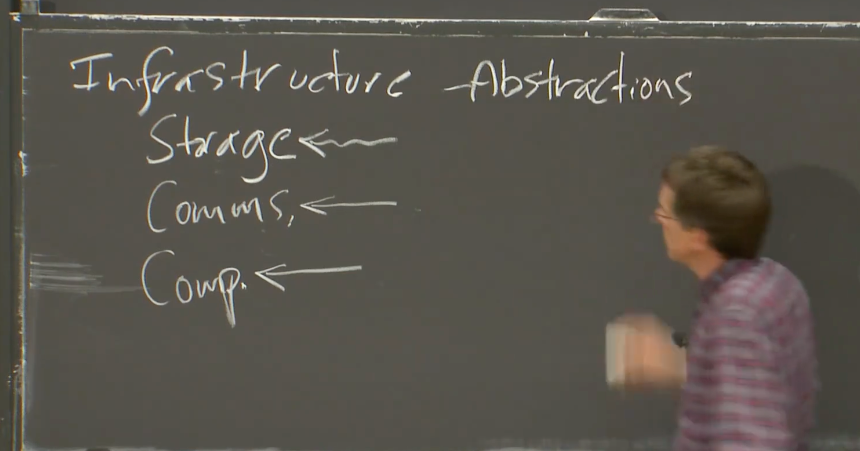 Infrastructure - Abstractions
Storage ←
Comms. ←
Comp. ←